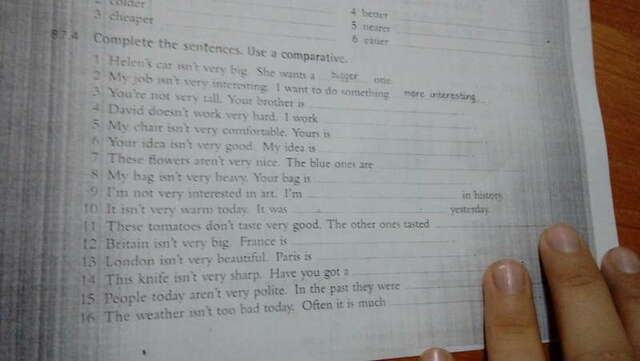 3 cheaper
4 better
5 nearer
6 easier
87.4 Complete the sentences. Use a comparative.
1 Helen's car isn't very big. She wants a bigger one
2 My job isn't very interesting. I want to do something more interesting
3 You're not very tall. Your brother is
4 David doesn't work very hard. I work
5 My chair isn't very comfortable. Yours is
6 Your idea isn't very good. My idea is
7 These flowers aren't very nice. The blue ones are
8 My bag isn't very heavy. Your bag is
9 I'm not very interested in art. I'm in history.
10 It isn't very warm today. It was yesterday.
11 These tomatoes don't taste very good. The other ones tasted
12 Britain isn't very big. France is
13 London isn't very beautiful. Paris is
14 This knife isn't very sharp. Have you got a
15 People today aren't very polite. In the past they were
16 The weather isn't too bad today. Often it is much